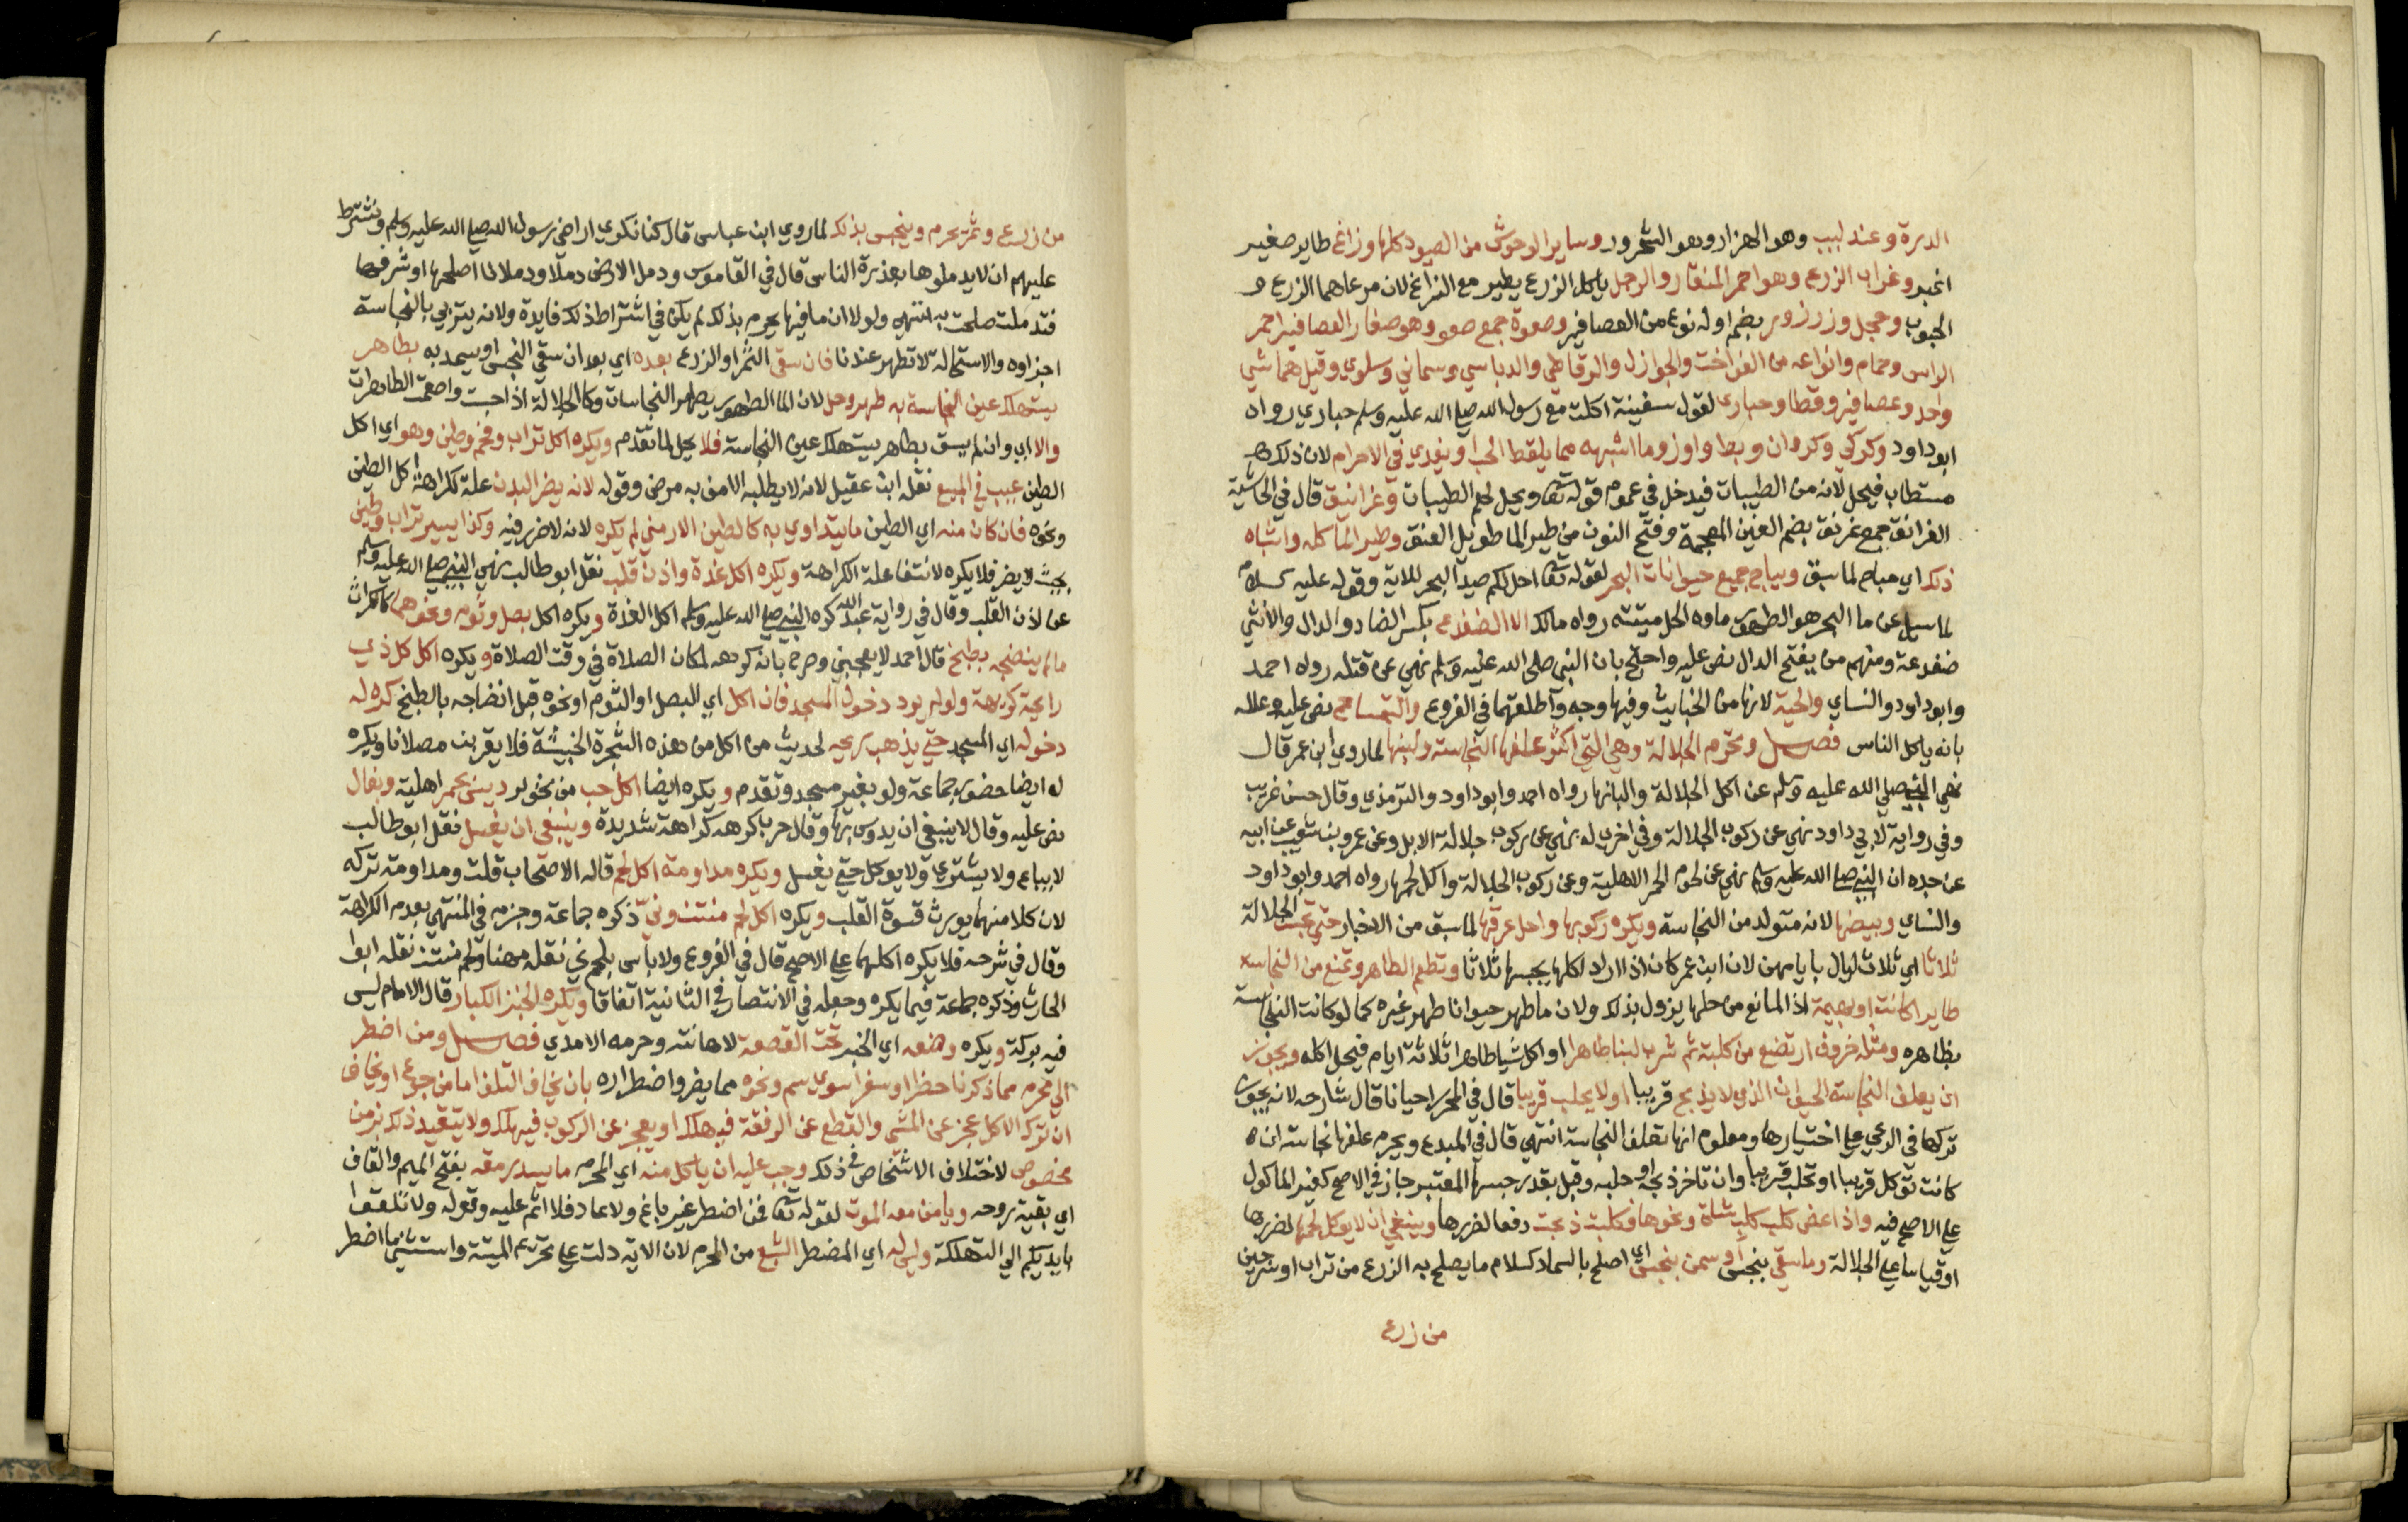 الدرة وعندليب وهو الهزار وهو الشحرور وساير الوحوش من الصيود كلها وزاغ طاير صغير
اغبر وغراب الزرع وهو احمر المنقار والرجل ياكل الزرع يطير مع الزاغ لان مرعاهما الزرع و
الحبوب وحجل وزرزور بضم اوله نوع من العصافير وصعوة جمع صعو وهو صغار العصافير احمر
الراس وحمام وانواعه من الفواخت والجوازل والرقاطي والدباسي وسماني وسلوي وقيل هما شي
واحد وعصافير وقطا وحباري لقول سفينة اكلت مع رسول الله صلى الله عليه وسلم حباري رواه
ابو داود وكركي وكروان وبط واوز وما اشبهه مما يلقط الحب او يفدي في الاحرام لان ذلك
مستطاب فيحل لانه من الطيبات فيدخل في عموم قوله تعا ويحل لهم الطيبات وغرانيق قال في الحاشية
الغرانق جمع غرنق بضم الغين المعجمة وفتح النون من طير الما طويل العنق وطير الما كله واشباه
ذلك اي مباح لما سبق ويباح جميع حيوانات البحر لقوله تعا احل لكم صيد البحر للاية وقوله عليه السلام
لما سيل عن ما البحر هو الطهور ماوه الحل ميتته رواه مالك الا الضفدع بكسر الضاد والدال والانثي
ضفدعة ومنهم من يفتح الدال نص عليه واحتج بان النبي صلى الله عليه وسلم نهي عن قتله رواه احمد
وابو داود والنساي والحية لانها من الخبايث وفيها وجه واطلقهما في الفروع والتمساح نص عليه وعلله
بانه ياكل الناس فصل وتحرم الجلالة وهي التي اكثر علفها النجاسة ولبنها لما روي ابن عمر قال
نهي النبي صلي الله عليه وسلم عن اكل الجلالة والبانها رواه احمد وابو داود والترمذي وقال حسن غريب
وفي رواية لابي داود نهي عن ركوب الجلالة وفي اخرى له نهي عن ركوب جلالة الابل وعن عمرو بن شعيب عن ابيه
عن جده ان النبي صلى الله عليه وسلم نهي عن لحوم الحمر الاهلية وعن ركوب الجلالة واكل لحمها رواه احمد وابو داود
والنساي وبيضها لانه متولد من النجاسة ويكره ركوبها واجل عرقها لما سبق من الاخبار حتي تحبس الجلالة
ثلاثا اي ثلاث ليال بايامهن لان ابن عمر كان اذا اراد اكلها يحبسها ثلاثا وتطعم الطاهر وتمنع من النجاسة
طايرا كانت او بهيمة اذ المانع من حلها يزول بذلك ولان ما طهر حيوانا طهر غيره كما لو كانت النجاسة
بظاهره ومثله خروف ارتضع من كلبة ثم شرب لبنا طاهرا او اكل شيا طاهرا ثلاثة ايام فيحل اكله ويجوز
ان يعلف النجاسة الحيوان الذي لا يذبح قريبا او لا يحلب قريبا قال في المحرر احيانا قال شارحه لانه يجوز
تركها في الرعي علي اختيارها ومعلوم انها تعلف النجاسة انتهي قال في المبدع ويحرم علفها نجاسة ان
كانت توكل قريبا او تحلب قريبا وان تاخر ذبحه او حلبه وقيل بقدر حبسها المعتبر جاز في الاصح كغير الماكول
علي الاصح فيه واذا عض كلب كلب شاة ونحوها فكلبت ذبحت دفعا لضررها وينبغي ان لا يوكل لحمها لضررها
او قياسا علي الجلالة وما سقي بنجس او سمن بنجس اي اصلح بالسماد كسلام ما يصلح به الزرع من تراب او سرجين
من زرع
من زرع وثمر يحرم وينجس بذلك لما روي ابن عباس قال كنا نكري اراضي رسول الله صلى الله عليه وسلم ونشترط
عليهم ان لا يدملوها بعذرة الناس قال في القاموس ودمل الارض دملا ودملانا اصلحها او سرقنها
فتدملت صلحت به انتهي ولولا ان ما فيها يحرم بذلك لم يكن في اشتراط ذلك فايدة ولانه يتربي بالنجاسة
اجزاوه والاستحالة لا تطهر عندنا فان سقي الثمر او الزرع بعده اي بعد ان سقي النجس او سمد به بطاهر
يستهلك عين النجاسة به طهر وحل لان الما الطهور يطهر النجاسات وكالجلالة اذا حبست واطعمت الطاهرات
والا اي وان لم يسق بطاهر يستهلك عين النجاسة فلا يحل لما تقدم ويكره اكل تراب وفحم وطين وهو اي اكل
الطين عيب في المبيع نقله ابن عقيل لانه لا يطلبه الا من به مرض وقوله لانه يضر البدن علة لكراهة اكل الطين
ونحوه فان كان منه اي الطين ما يتداوي به كالطين الارمني لم يكره لانه لا ضرر فيه وكذا يسير تراب وطين
بحيث لا يضر فلا يكره لانتفا علة الكراهة ويكره اكل غدة واذن قلب نقل ابو طالب نهي النبي صلى الله عليه وسلم
عن اذن القلب وقال في رواية عبد الله كره النبي صلى الله عليه وسلم اكل الغدة ويكره اكل بصل وثوم ونحوهما ككراث
ما لم ينضجه بطبخ قال احمد لا يعجبني وصرح بانه كرهه لمكان الصلاة في وقت الصلاة ويكره اكل كل ذي
رايحة كريهة ولو لم يرد دخول المسجد فان اكل اي البصل او الثوم او نحوه قبل انضاجه بالطبخ كره له
دخوله اي المسجد حتي يذهب ريحه لحديث من اكل من هذه الشجرة الخبيثة فلا يقربن مصلانا ويكره
له ايضا حضور جماعة ولو بغير مسجد وتقدم ويكره ايضا اكل حب من نحو بر ديس بحمر اهلية وبغال
نص عليه وقال لا ينبغي ان يدوس بها وقال حرب كرهه كراهة شديدة وينبغي ان يغسل نقل ابو طالب
لا يباع ولا يشتري ولا يوكل حتي يغسل ويكره مداومة اكل لحم قاله الاصحاب قلت ومداومة تركه
لان كلا منهما يورث قسوة القلب ويكره اكل لحم منتن وني ذكره جماعة وجزم في المنتهي بعدم الكراهة
وقال في شرحه فلا يكره اكلهما علي الاصح قال في الفروع ولا باس بلحم ني نقله مهنا ولحم منتن نقله ابوا
الحارث وذكره جماعة فيما يكره وجعله في الانتصار في الثانية اتفاقا ويكره الخبز الكبار قال الامام ليس
فيه بركة ويكره وضعه اي الخبز تحت القصعة لاهانته وحرمه الامدي فصل ومن اضطر
الي محرم مما ذكرنا حضرا او سفرا سوي سم ونحوه مما يضر واضطراره بان يخاف التلف اما من جوع او يخاف
ان ترك الاكل عجز عن المشي وانقطع عن الرفقة فيهلك او يعجز عن الركوب فيهلك ولا يتقيد ذلك بزمن
مخصوص لاختلاف الاشخاص في ذلك وجب عليه ان ياكل منه اي المحرم ما يسد رمقه بفتح الميم والقاف
اي بقية روحه ويامن معه الموت لقوله تعا فمن اضطر غير باغ ولا عاد فلا اثم عليه وقوله ولا تلقوا
بايديكم الي التهلكة وليس له اي المضطر الشبع من المحرم لان الاية دلت علي تحريم الميتة واستثني ما اضطر